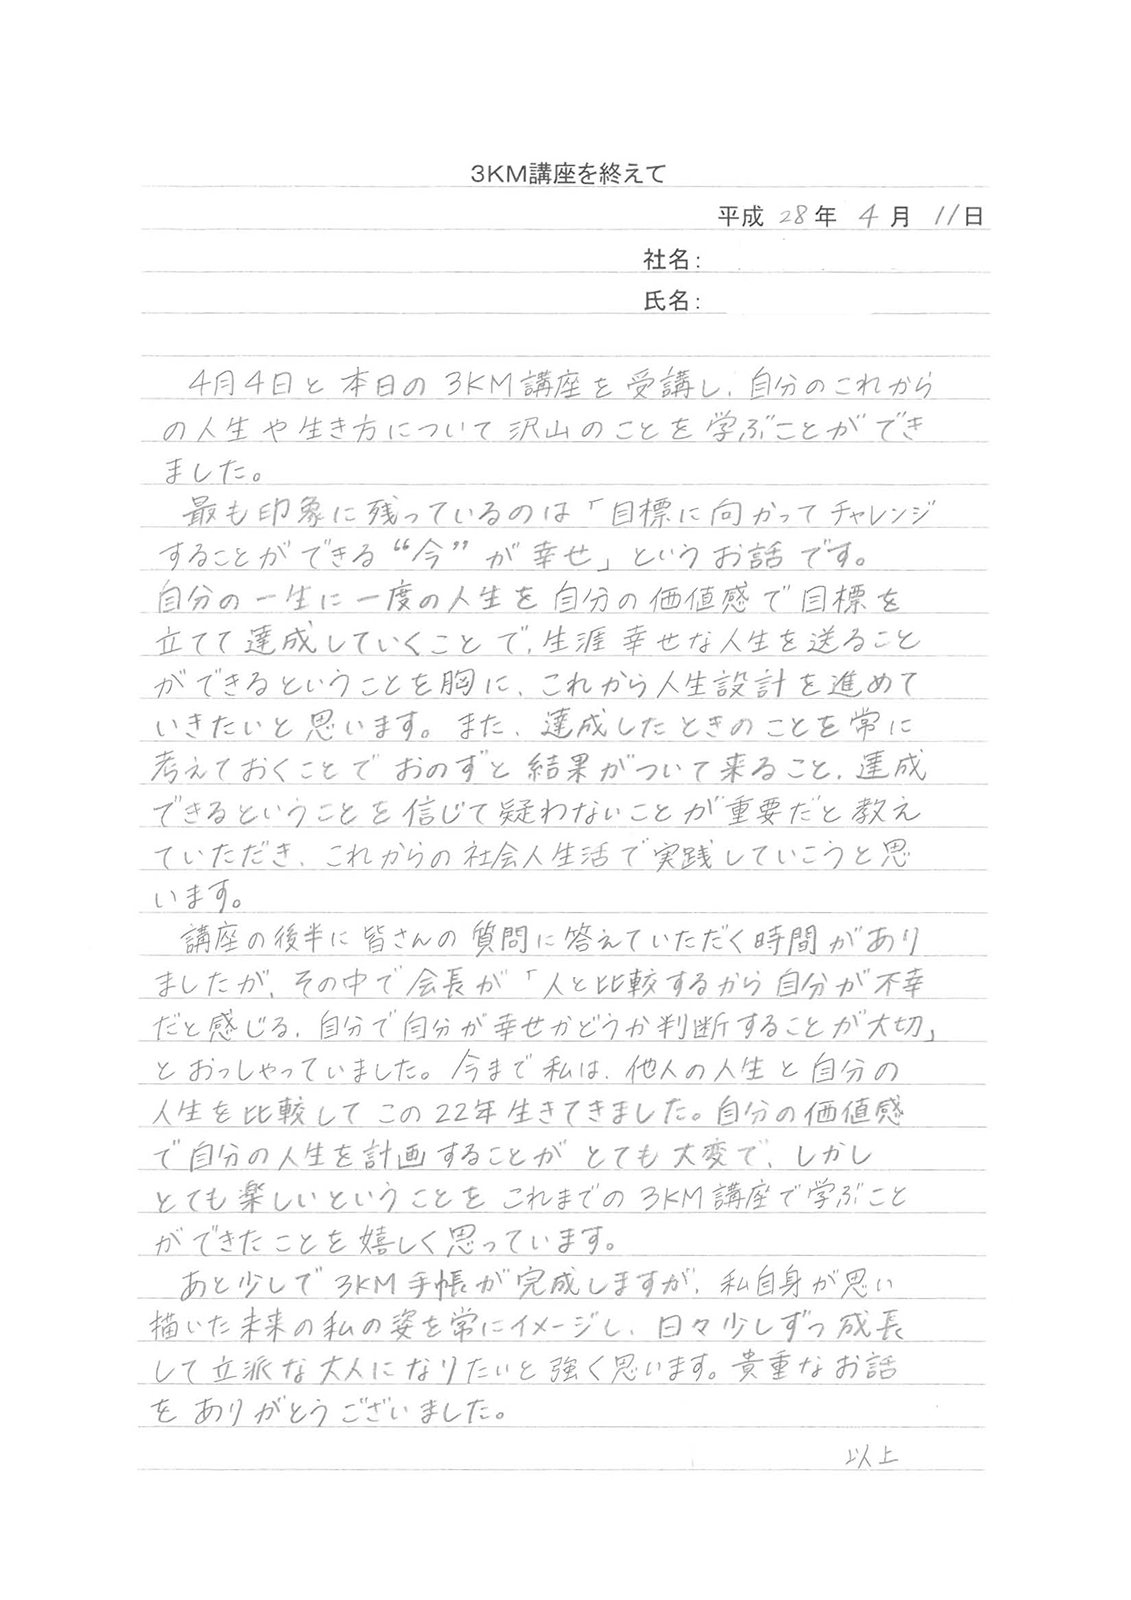 3KM講座を終えて
平成 28年 4月 11日
社名:
氏名:
4月4日と本日の3KM講座を受講し、自分のこれから
の人生や生き方について沢山のことを学ぶことができ
ました。
最も印象に残っているのは「目標に向かってチャレンジ
することができる“今”が幸せ」というお話です。
自分の一生に一度の人生を自分の価値感で目標を
立てて達成していくことで、生涯幸せな人生を送ること
ができるということを胸に、これから人生設計を進めて
いきたいと思います。また、達成したときのことを常に
考えておくことでおのずと結果がついて来ること、達成
できるということを信じて疑わないことが重要だと教え
ていただき、これからの社会人生活で実践していこうと思
います。
講座の後半に皆さんの質問に答えていただく時間があり
ましたが、その中で会長が「人と比較するから自分が不幸
だと感じる、自分で自分が幸せかどうか判断することが大切」
とおっしゃっていました。今まで私は、他人の人生と自分の
人生を比較してこの22年生きてきました。自分の価値感
で自分の人生を計画することがとても大変で、しかし
とても楽しいということをこれまでの3KM講座で学ぶこと
ができたことを嬉しく思っています。
あと少しで3KM手帳が完成しますが、私自身が思い
描いた未来の私の姿を常にイメージし、日々少しずつ成長
して立派な大人になりたいと強く思います。貴重なお話
をありがとうございました。
以上